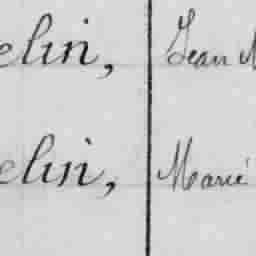 elin, Jean M
elin, Marie